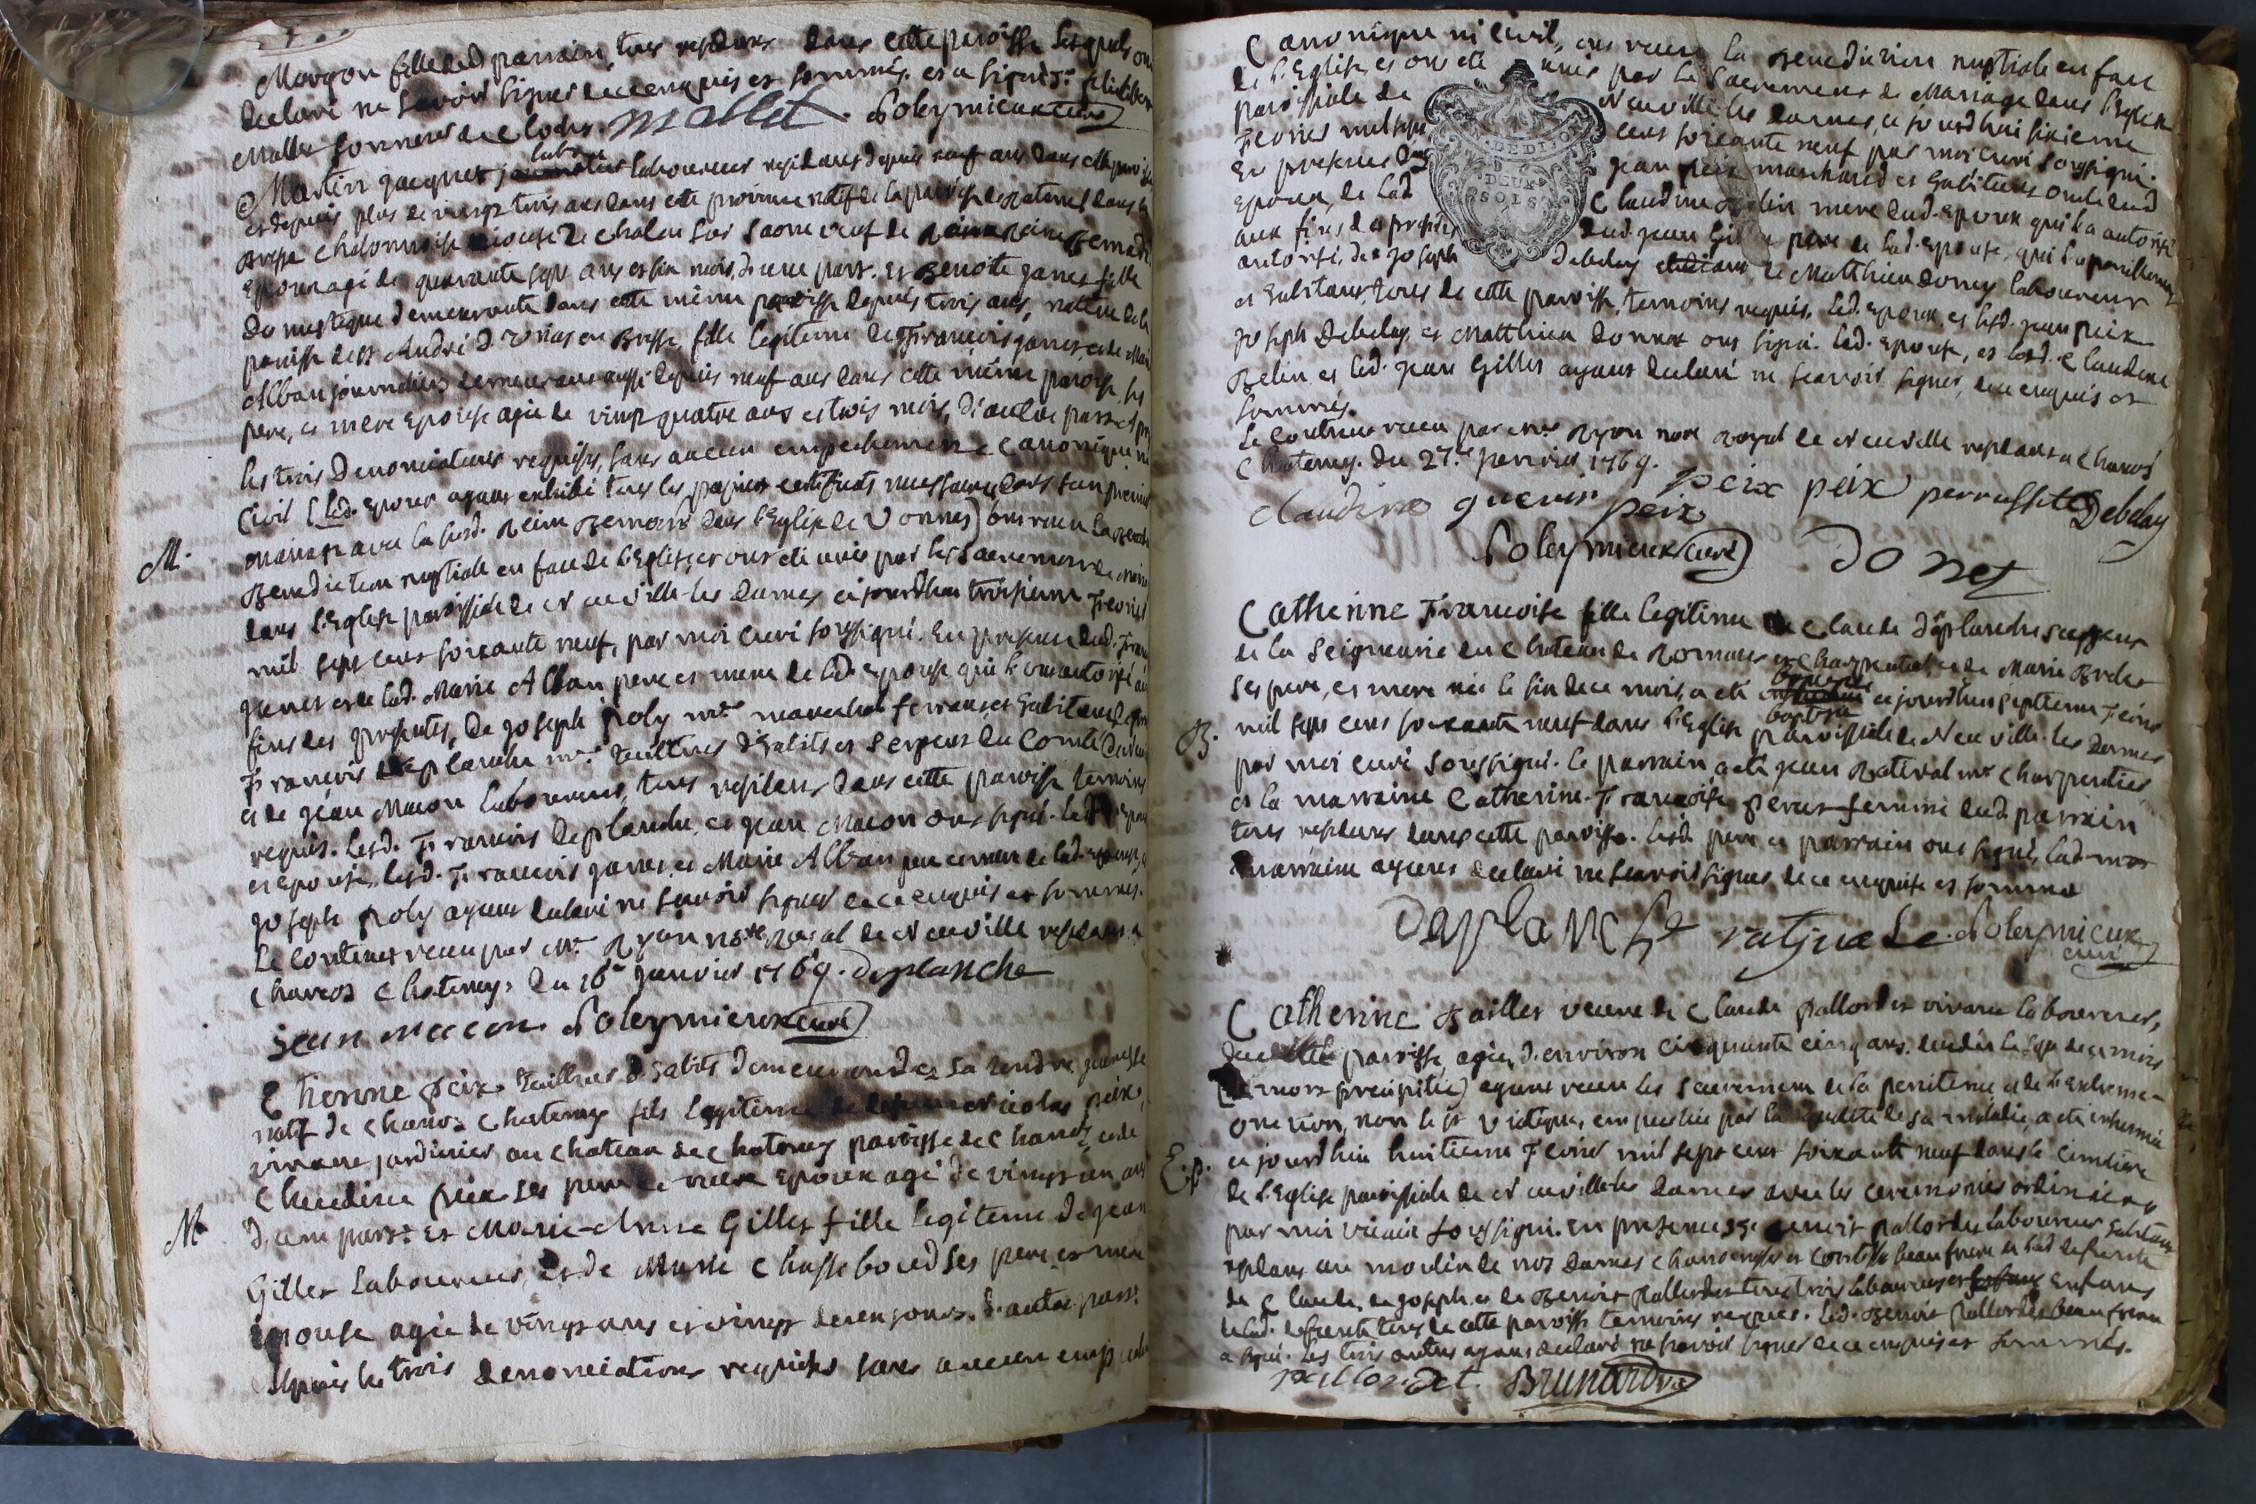 Morgon fille dud. parrain, tous residans dans cette paroisse lesquels on
declaré ne savoir signer de ce enquis et sommés, et a signé
Mallet sonneur de cloches. Mallet. Poleymieux curé
Martin Jacquet laboureur residant depuis neuf ans dans cette paroisse
et depuis plus de vingt trois ans dans cette province natif de la paroisse de dans la
Bresse Chalonnoise Diocese de Chalon sur Saone veuf de Reine Bernard
Epoux agé de quarante sept ans et six mois, d'une part. et Benoite fille
Domestique demeurante dans cette même paroisse depuis trois ans, native de la
paroisse de St André en Bresse, fille legitime de François et de Marie
Alban journaliers demeurans aussi depuis neuf ans dans cette même paroisse, ses
pere, et mere Epouse agée de vingt quatre ans et trois mois, d'autre part. Apr
les trois denonciations requises, sans aucun empechement canonique ni
Civil (led. Epoux ayant exhibé tous les papiers certificats necessaires dans son premier
mariage avec la susd. Reine Bernard dans l'Eglise de Vonnas) ont receu la
Benediction nuptiale en face de l'Eglise et ont eté unis par le Sacrement de
M.
dans l'Eglise paroissiale de Neuville-les Dames ce jourdhui troisieme Fevrier
mil sept cent soixante neuf, par moi curé soussigné. En presence dud. Fran
et de lad. Marie Alban pere et mere de lad. Epouse qui l'ont autorisé au
fins des presentes, De Joseph Poly mre marechal ferrant et habitant, de
François Deplanche mre tailleur d'habits et sergent du Comté
et de Jean Macon laboureur, tous residans dans cette paroisse temoins
requis. Lesd. François Deplanche, et Jean Macon ont signé. Led. Epou
et epouse, lesd. François et Marie Alban pere et mere de lad. epouse, et
Joseph Poly ayant declaré ne savoir signer de ce enquis et sommés.
Le contract receu par Me Ryon Notre Royal de Neuville residant a
Chanoz Chatenay, du 16e janvier 1769. Deplanche
Jean macon Poleymieux curé
Etienne Peix tailleur d'habits demeurant dez sa tendre jeunesse
natif de Chanoz Chatenay fils legitime Nicolas Peix,
vivant jardinier au chateau de Chatenay paroisse de Chanoz, et de
Claudine ses pere et mere Epoux agé de vingt un ans
M
d'une part: Et Marie-Anne Gillet fille legitime de Jean
Gillet laboureur, et de Marie Chassebout ses pere, et mere
Epouse agée de vingt ans et vingt deux jours, d'autre part.
Apres les trois denonciations requises sans aucun empech
Canonique ni Civil, ont receu la Benediction nuptiale en face
de l'Eglise et ont eté unis par le Sacrement de Mariage dans l'Eglise
paroissiale de Neuville-les Dames, ce jourdhui sixieme
Fevrier mil sept cent soixante neuf par moi curé soussigné.
En presence Jean Peix marchand et habitant oncle dud
Epoux, de lad Claudine Belin mere dud. Epoux qui l'a autorisé
aux fins des presentes dud. Jean Gillet pere de lad. Epouse, qui l'a pareillement
autorisé, de Joseph Debelay de Matthieu Donnet laboureur
A. DE DIJON
DEUX
SOLS
et habitans, tous de cette paroisse, temoins requis. Led. Epoux, et led. Jean Peix
Joseph Debelay, et Matthieu Donnet ont signé. Lad. Epouse, et lad. Claudine
Belin et led. Jean Gillet ayant declaré ne scavoir signer, de ce enquis et
sommés.
Le Contract receu par me Ryon notre Royal de Neuville residant a Chanoz
Chatenay. du 27e janvier 1769. peix peix perrussette Debelay
Claudine guerin peix
Poleymieux curé Donet
Catherine Françoise fille legitime de Claude Deplanche sergent
de la Seigneurie du Chateau de Romans et charpentier, et de Marie
ses pere, et mere née le six de ce mois, a eté baptisée ce jourdhui septieme Fevrier
B.
mil sept cent soixante neuf dans l'Eglise paroissiale de Neuville-les Dames
par moi curé soussigné. Le parrain a eté Jean mre Charpentier
et la marraine Catherine-Françoise femme dud parrain
tous residans dans cette paroisse. Lesd. pere et parrain ont signé, lad. mar
marraine ayant declaré ne scavoir signer de ce enquise et sommée
Deplanche Poleymieux
curé
Catherine Bailler veuve de Claude Pallordet vivant laboureur,
de cette paroisse, agée d'environ cinquante cinq ans. decedée le sept de ce mois
(de mort precipitée) ayant receu les Sacremens de la penitence et de l'Extreme-
onction, non le St Viatique, empechée par la de sa maladie, a eté inhumée
E.p.
ce jourdhui huitieme Fevrier mil sept cent soixante neuf dans le cimetiere
de l'Eglise paroissiale de Neuville les Dames avec les ceremonies ordinaires
par moi vicaire soussigné. en presence de Benoit Pallordet laboureur habitant
residant au moulin de nos Dames Chanoinesses et Comtesses beau frere de lad defunte
de Claude, de Joseph et de Benoit Pallordet tous trois laboureurs enfans
de lad. defunte tous de cette paroisse temoins requis. Led. Benoit Pallordet beau frere
a signé. Les trois autres ayans declaré ne scavoir signer de ce enquis et sommés.
pallordet. Brunard vic